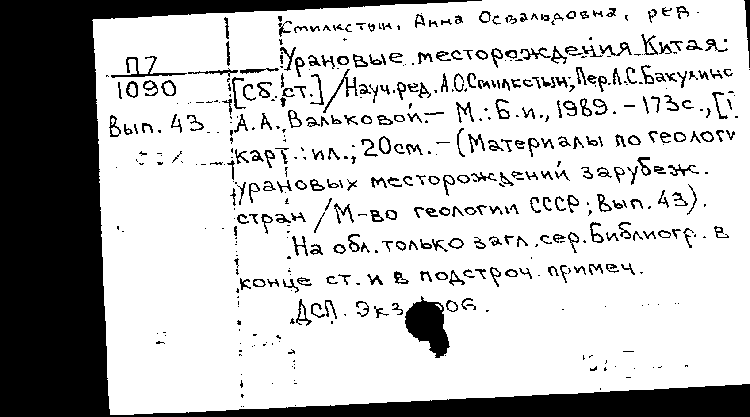 Смилкстын, Анна Освальдовна, ред.
П7
1090
Вып. 43
Урановые месторождения Китая:
[Сб. ст.] / Науч. ред. А.О. Смилкстын; Пер. Л.С. Бакулиной
А.А. Вальковой. – М.: Б.и., 1989. – 173с., [1
карт.: ил.; 20см. – (Материалы по геологи
урановых месторождений зарубеж.
стран / М-во геологии СССР; Вып. 43).
На обл. только загл. сер. Библиогр. в
конце ст. и в подстроч. примеч.
ДСП. Экз. 006.